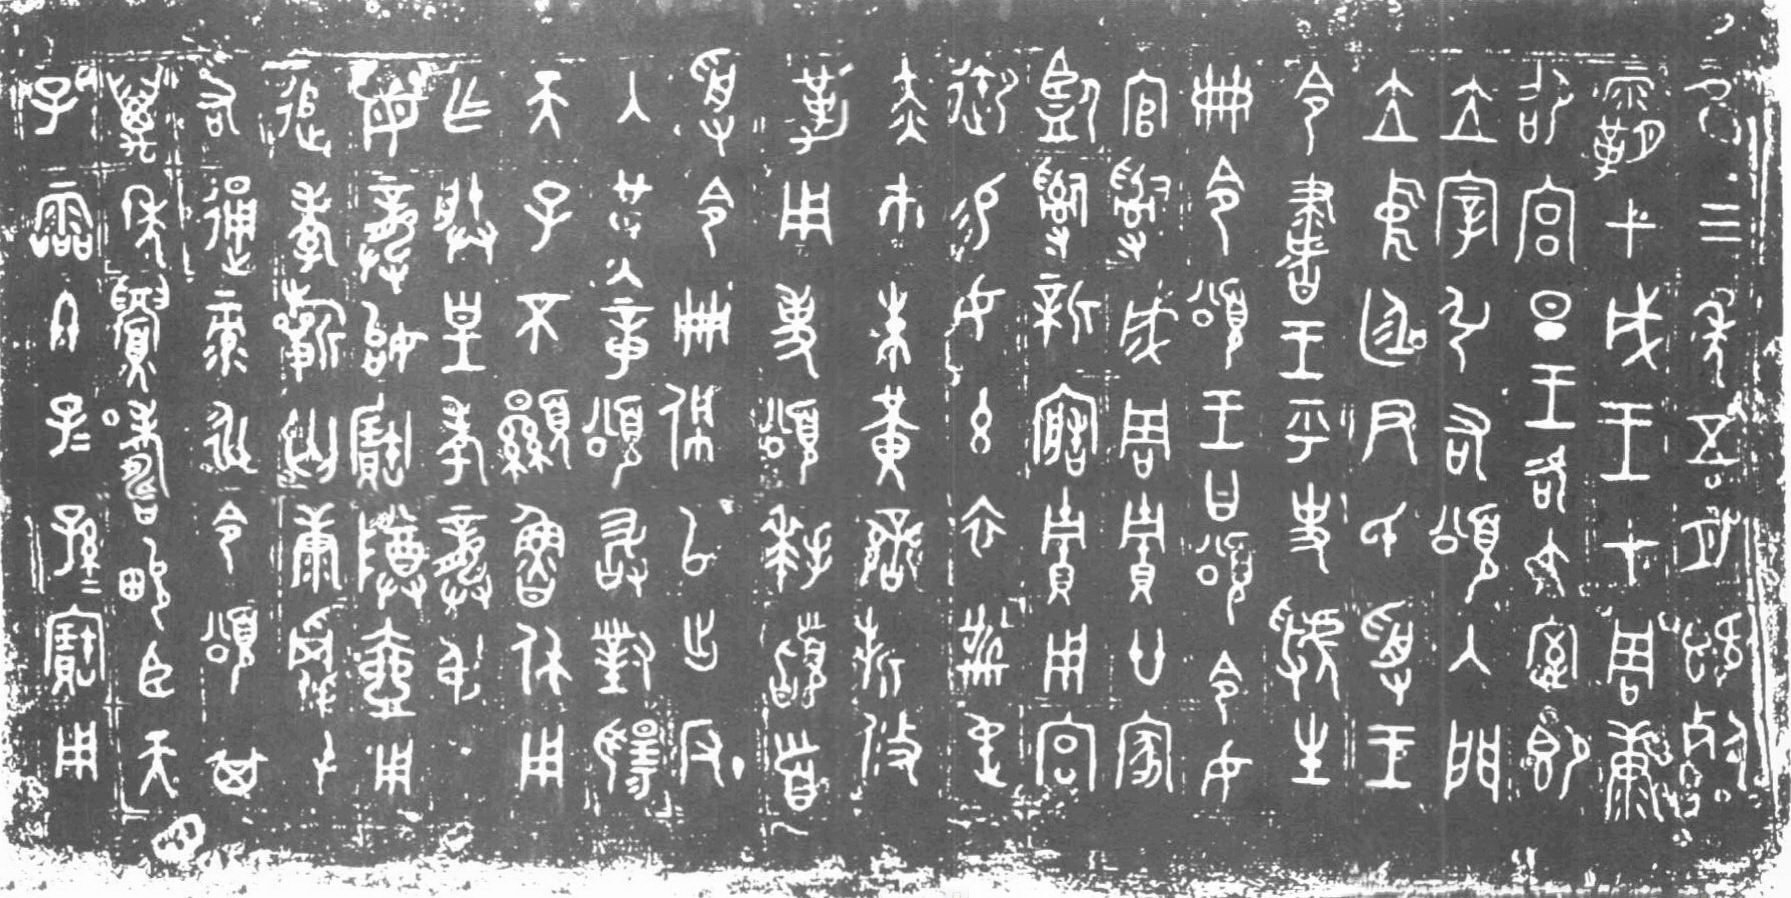 隹三年五月既死
霸甲戌王才周康
卲宮旦王各大室即
立宰引右頌入門
立中廷尹氏受王
令書王乎史虢生
冊令頌王曰頌令女
官𤔲成周貯廿家
監𤔲新造貯用宮
御易女玄衣黹屯
赤巿朱黃䜌旂攸
勒用事頌拜稽首
受令冊佩以出反
入堇章頌敢對揚
天子不顯魯休用
乍朕皇考龔叔
母龔始寶尊壺用
追孝祈匄康𩁹屯
右通彔永令頌其
萬年眉壽畯臣天
子霝冬子=孫=寶用